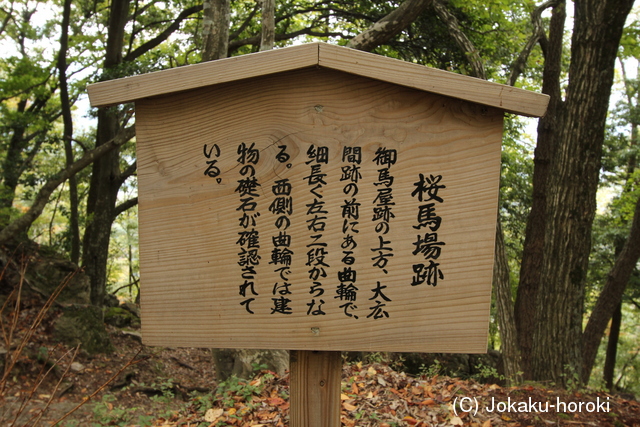 桜馬場跡
御馬屋跡の上方、大広
間跡の前にある曲輪で、
細長く左右二段からな
る。西側の曲輪では建
物の礎石が確認されて
いる。
(C) Jokaku-horoki